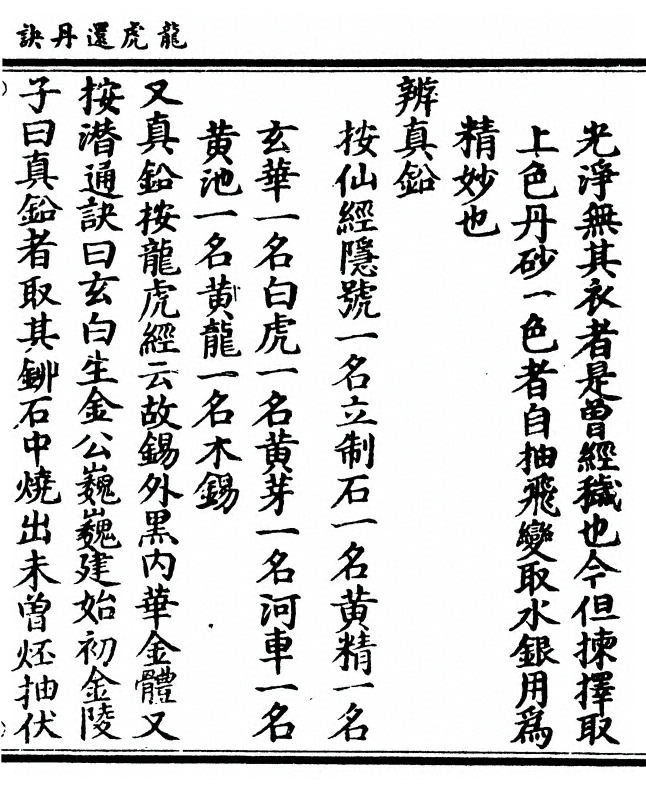 龍虎還丹訣
光淨無其衣者是曾經穢也今但揀擇取
上色丹砂一色者自抽飛變取水銀用為
精妙也
辨真鉛
按仙經隱號一名立制石一名黃精一名
玄華一名白虎一名黃芽一名河車一名
黃池一名黃龍一名木錫
又真鉛按龍虎經云故錫外黑內華金體又
按潛通訣曰玄白生金公巍巍建始初金陵
子曰真鉛者取其鉚石中燒出未曾烴抽伏